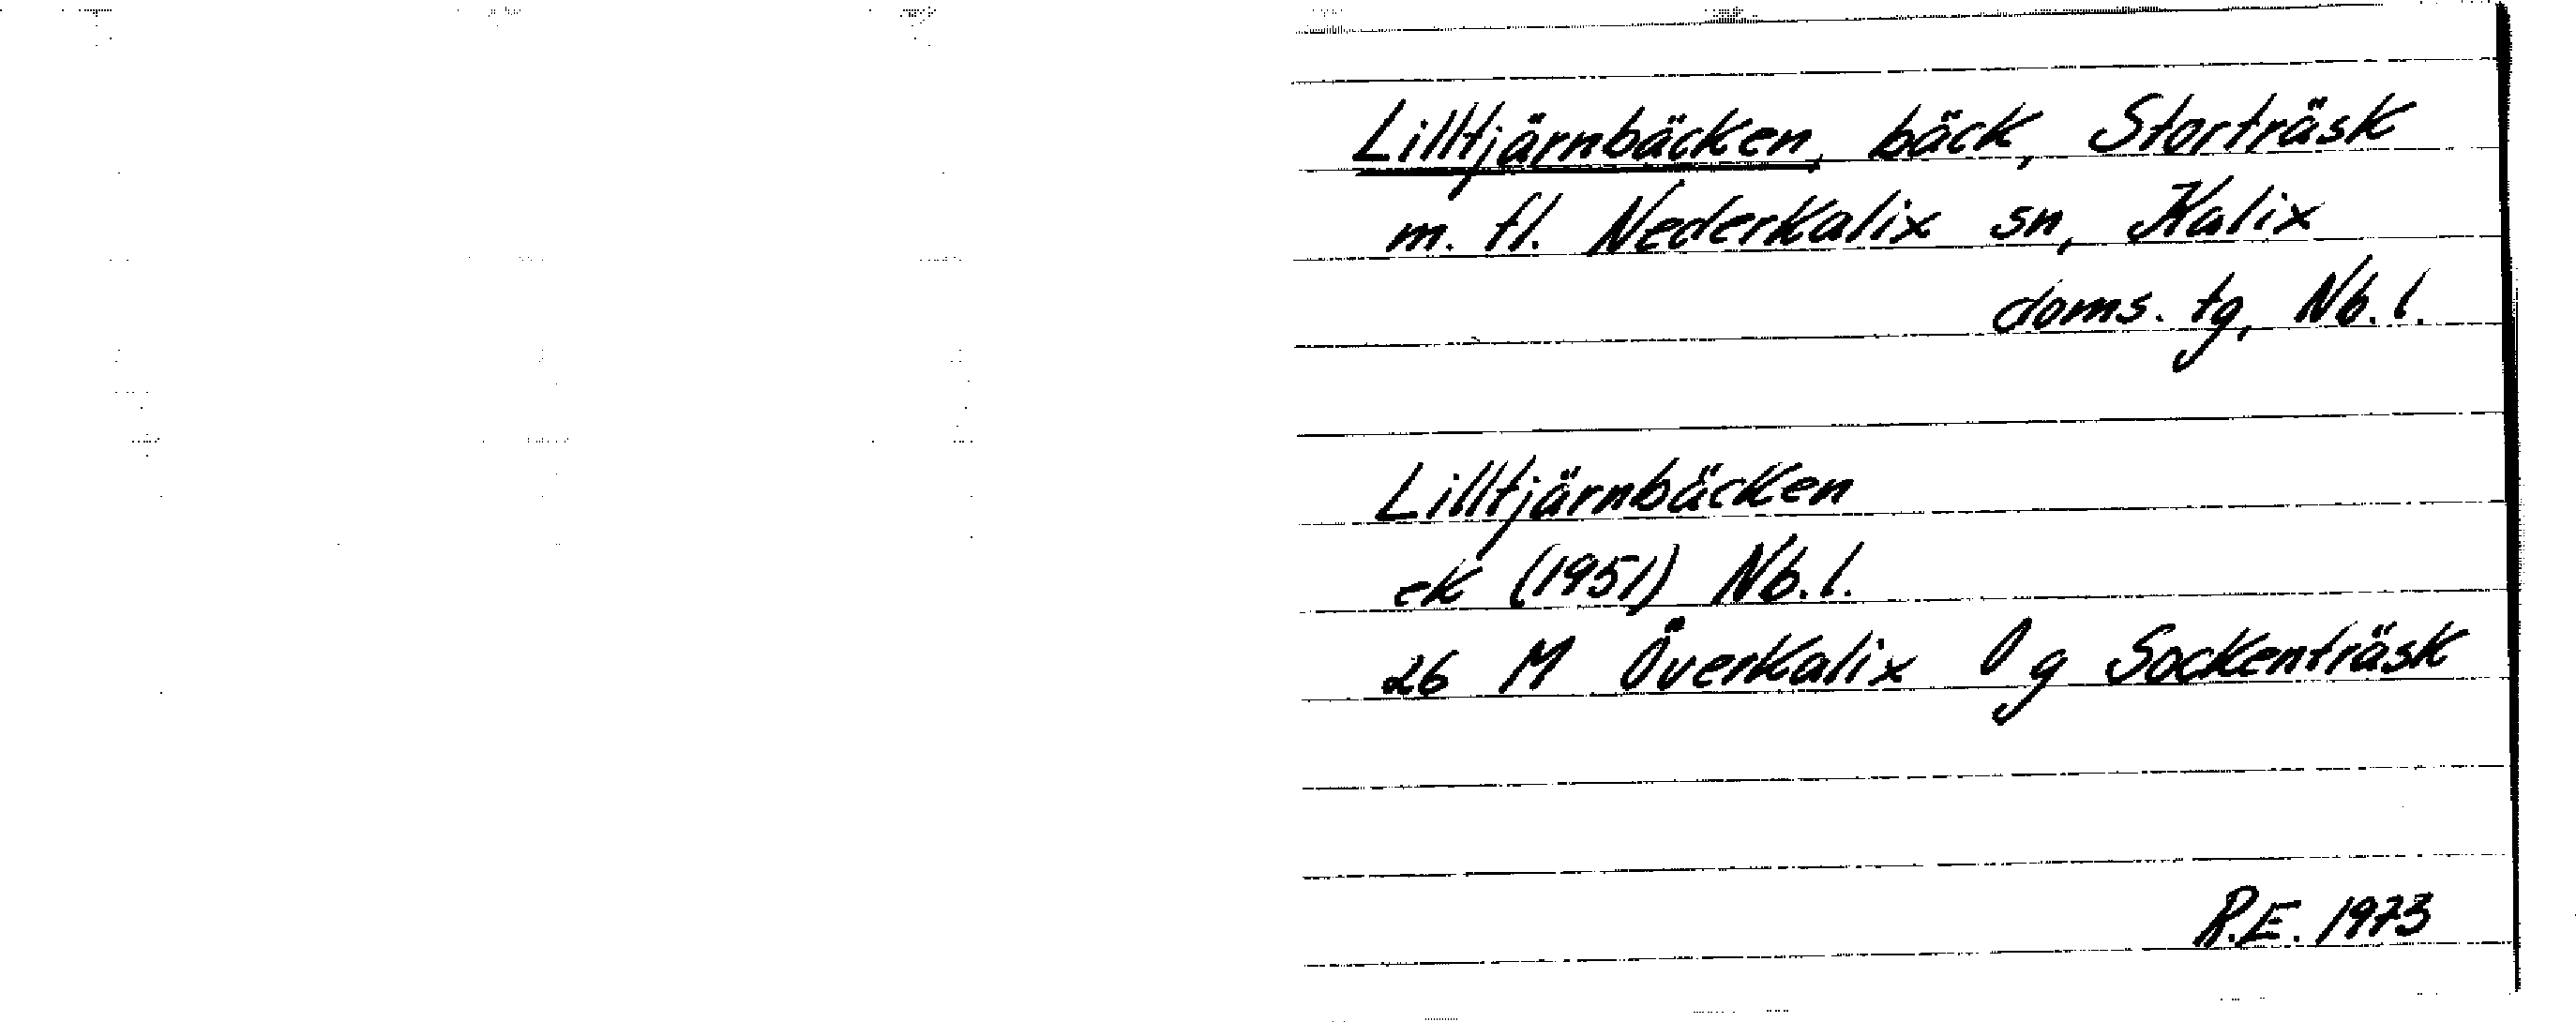 Lilltjärnbäcken, bäck, Storträsk
m. fl. Nederkalix sn, Kalix
doms. tg, Nb. l.
Lilltjärnbäcken
ek (1951) Nb. l.
26 M Överkalix 0 g Sockenträsk
R.E. 1973